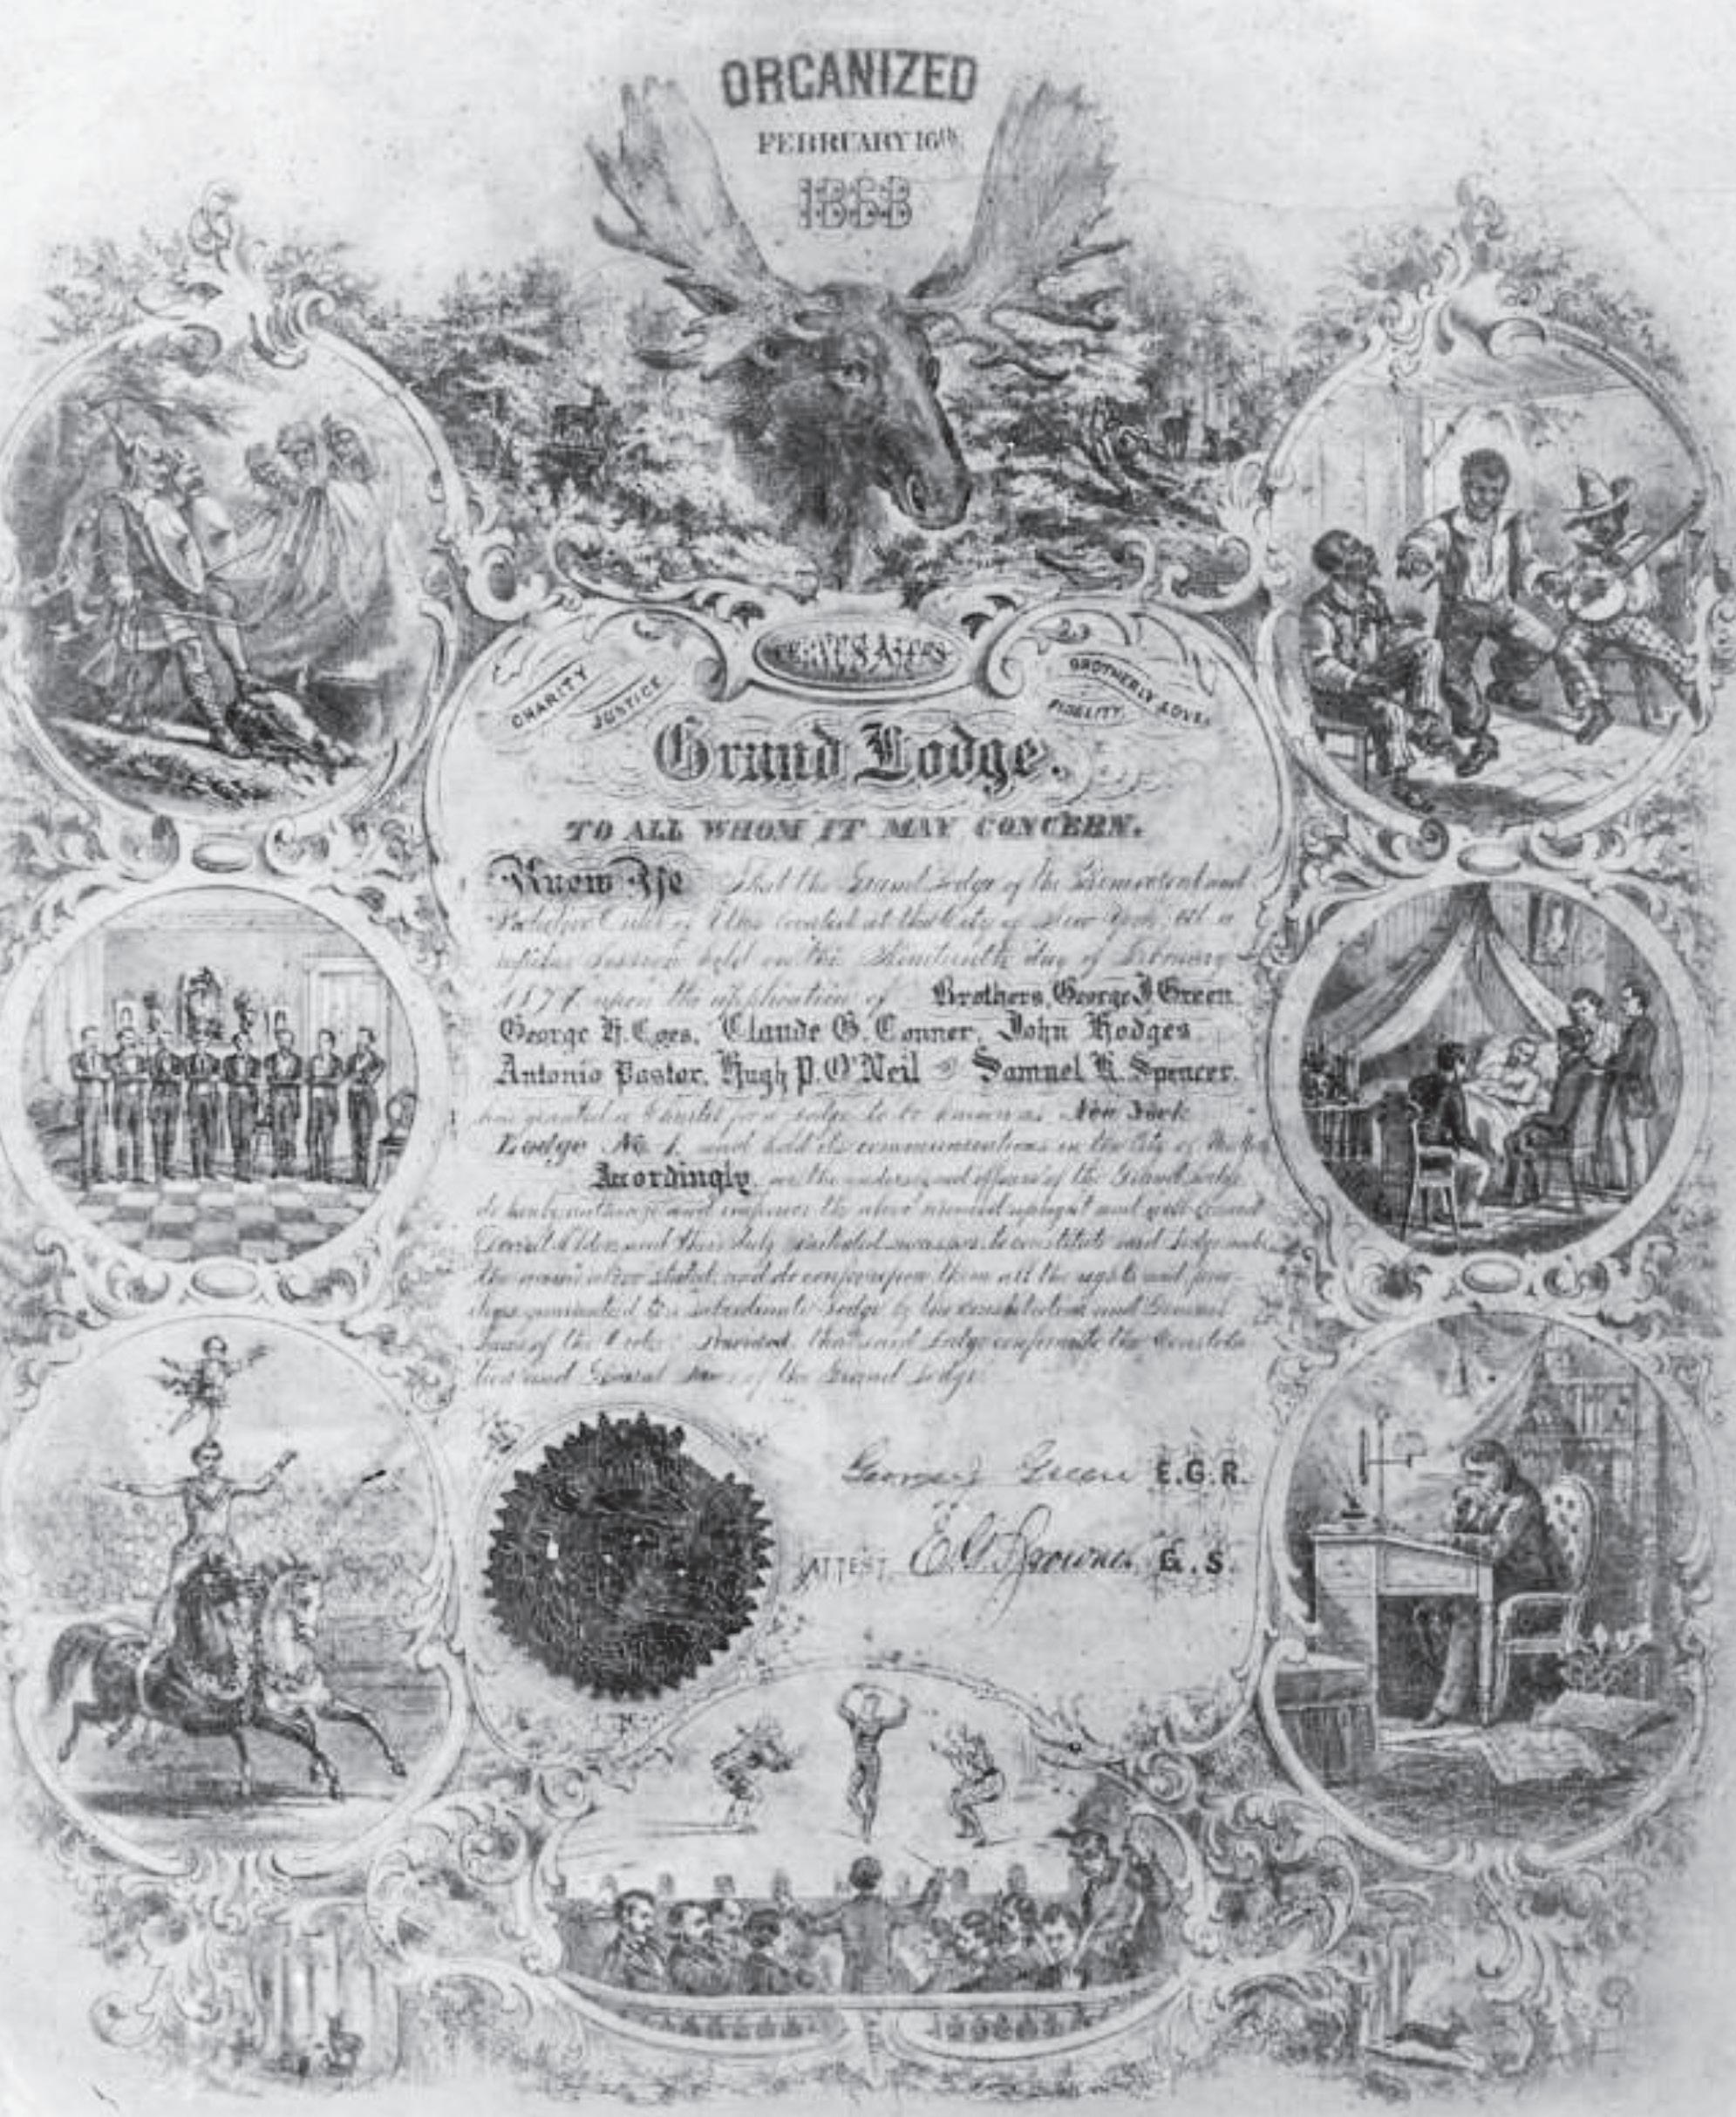 ORGANIZED
FEBRUARY 16th
1868
CHARITY
JUSTICE
BROTHERLY LOVE
FIDELITY
Grand Lodge.
TO ALL WHOM IT MAY CONCERN.
Know Ye That the Grand Lodge of the Benevolent and
Protective Order of Elks located at the City of New York, at a
session held on the Nineteenth day of February
187 upon the application of Brothers, George J. Green,
George H. Coes, Claude G. Conner, John Hodges,
Antonio Pastor, Hugh P. O'Neil Samuel K. Spencer,
have granted a Charter for a Lodge to be known as New York
Lodge No. 1. and hold its communications in the City of
Accordingly, we the undersigned officers of the Grand Lodge
do hereby authorize and empower the above named upright and
Elks, and their duly successors to constitute said Lodge
the above stated and do confer upon them all the rights and
guaranteed to a subordinate Lodge by the constitution and General
Laws of the Order. Provided, that said Lodge conform to the Constitu
tion and General Laws of the Grand Lodge.
George J. Green E.G.R.
ATTEST. G.S.